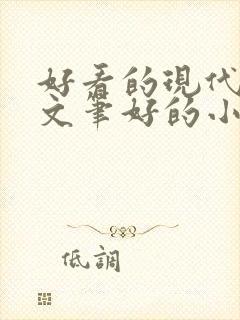 好看的現代
文筆好的小
低調